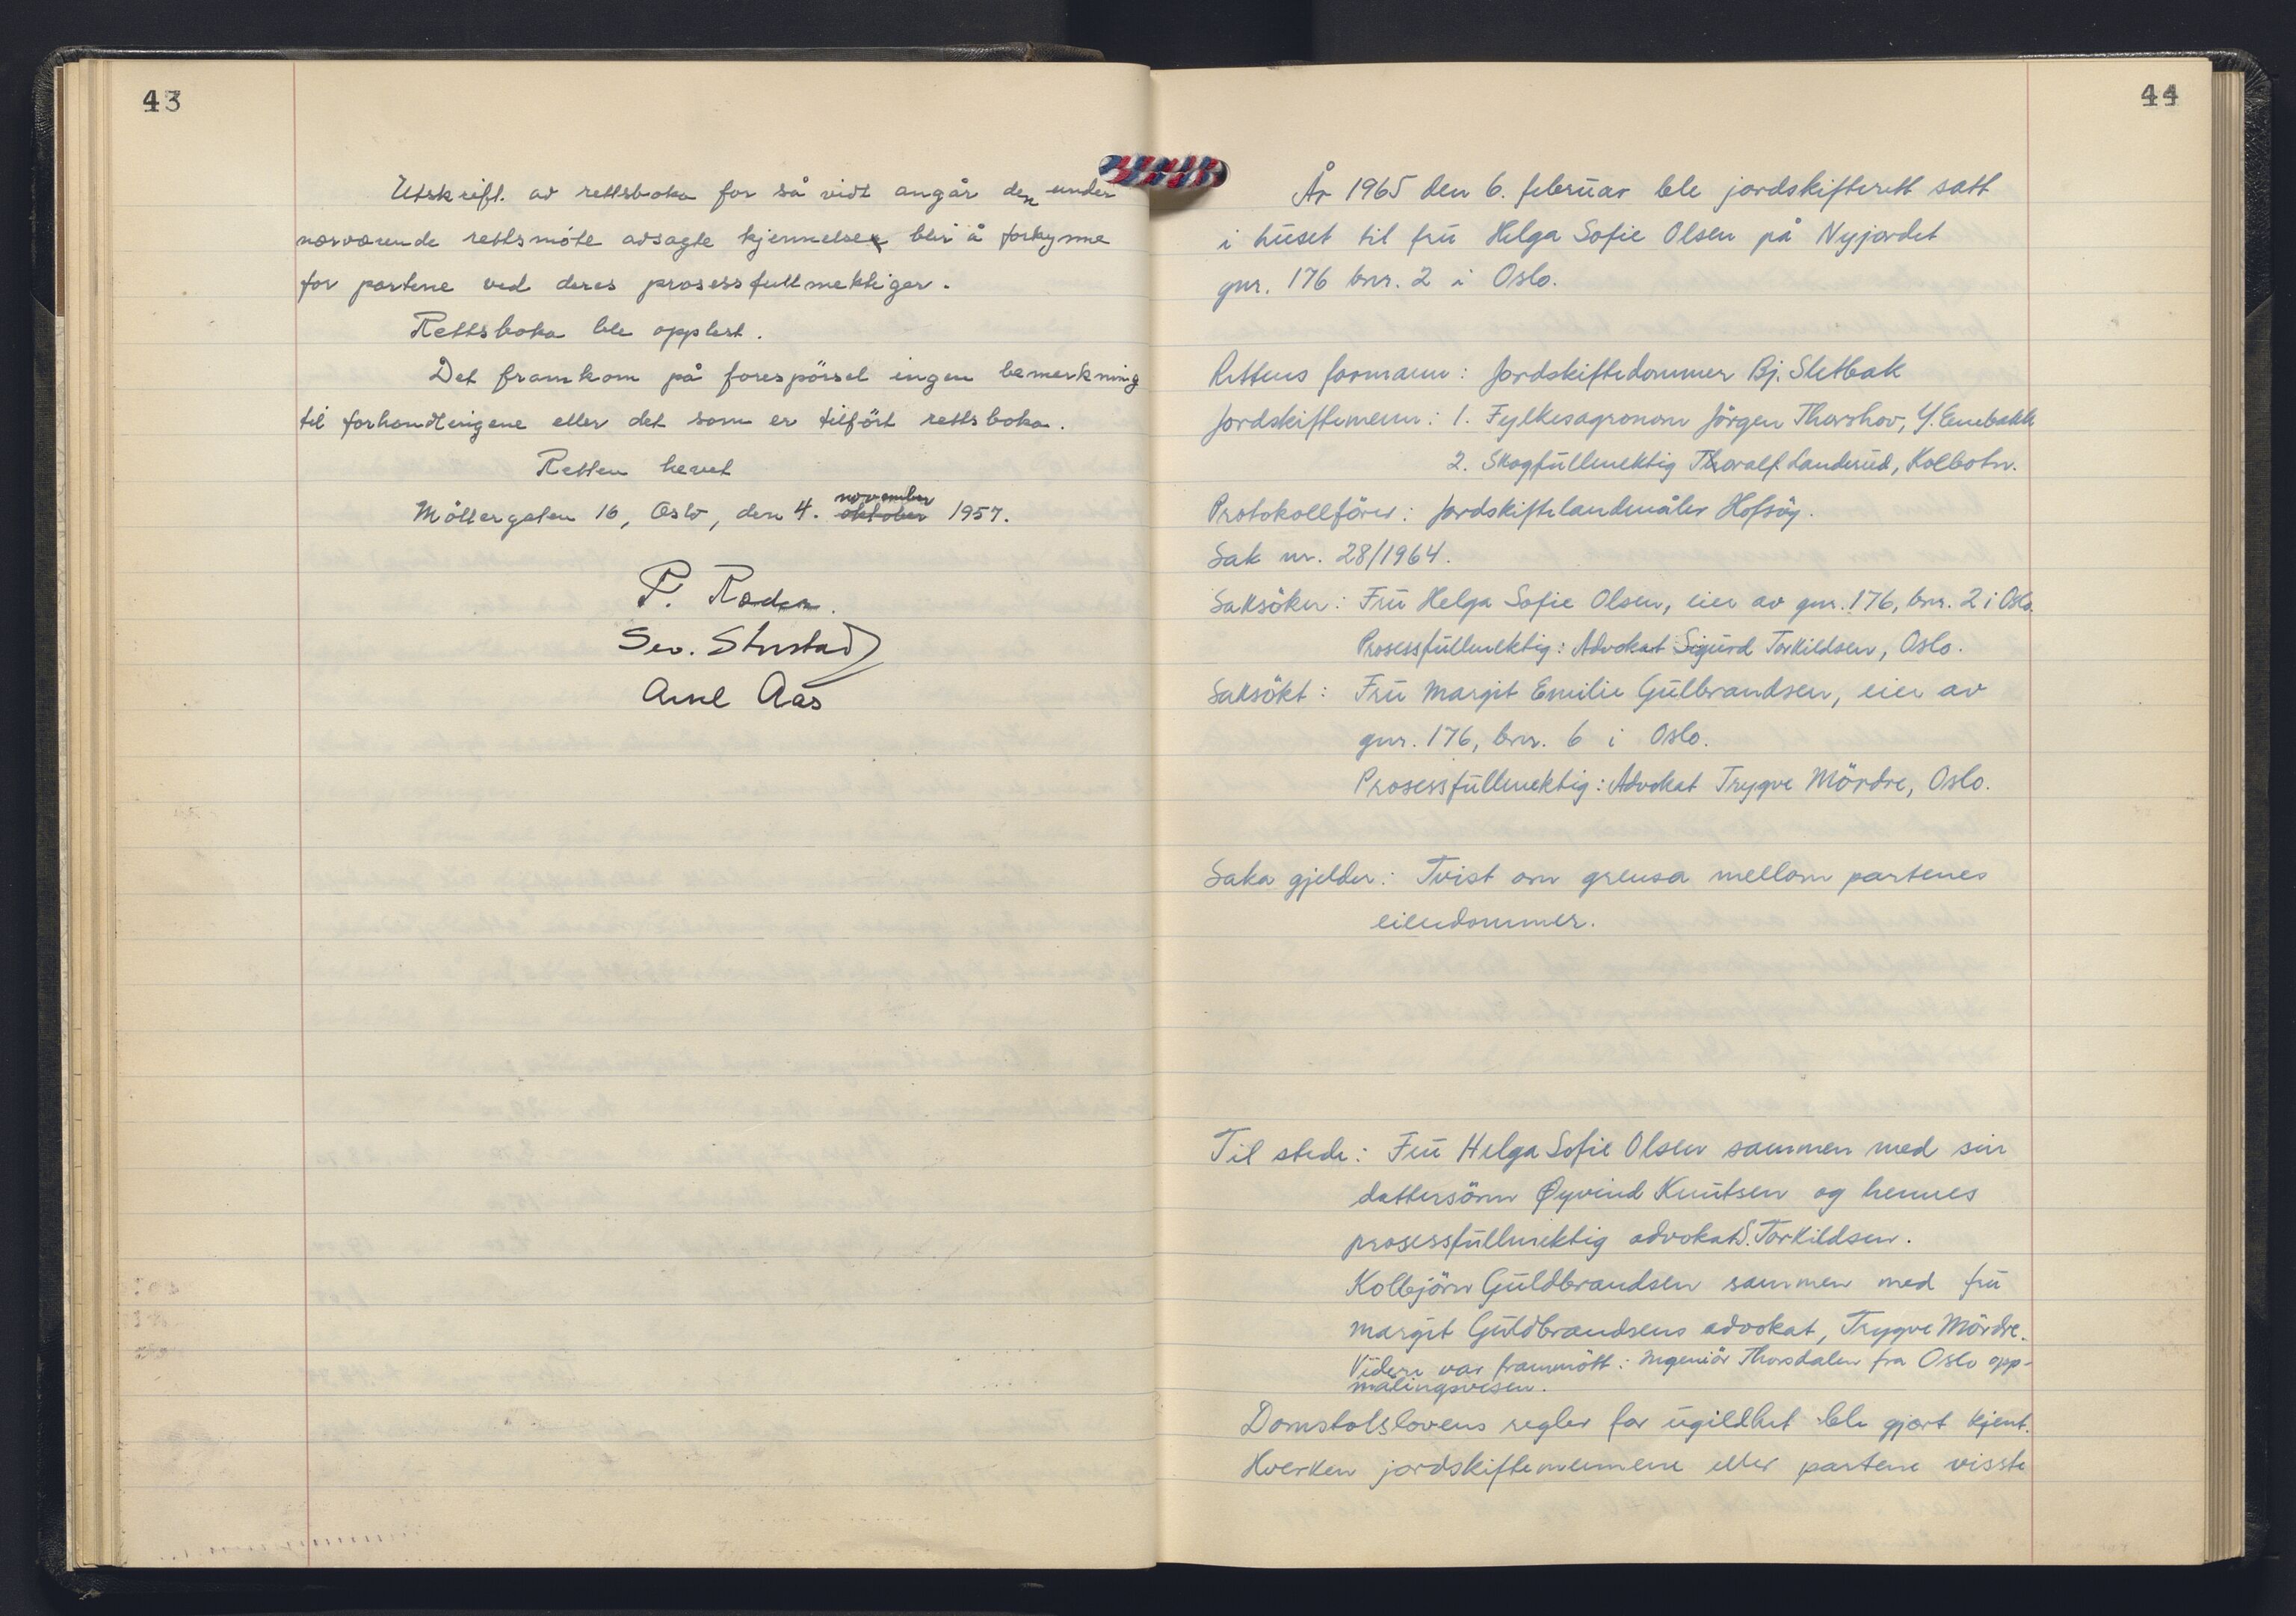 43
Utskrift. av rettsboka for så vidt angår den under
nærværende rettsmöte avsagte kjennelse blir å forkynne
for partene ved deres prosessfullmektiger.
Rettsboka ble opplest.
Det framkom på forespörsel ingen bemerkning
til forhandlingene eller det som er tilfört rettsboka.
Retten hevet
Möllergaten 16, Oslo, den 4. oktober november 1957.
P. Roden.
Sev. Strustad
Arne Aas
44
År 1965 den 6. februar ble jordskifterett satt
i huset til fru Helga Sofie Olsen på Nyjordet
gnr. 176 bnr. 2 i Oslo.
Rettens formann: Jordskiftedommer Bj. Sletbak
Jordskiftemenn: 1. Fylkesagronom Jörgen Thorshov, Y. Enebakk
2. Skogfullmektig Thoralf Landerud, Kolbotn.
Protokollförer: Jordskiftelandmåler Hofsöy.
Sak nr. 28/1964.
Saksöker: Fru Helga Sofie Olsen, eier av gnr. 176, bnr. 2 i Oslo.
Prosessfullmektig: Advokat Sigurd Torkildsen, Oslo.
Saksökt: Fru Margit Emilie Gulbrandsen, eier av
gnr. 176, bnr. 6 i Oslo.
Prosessfullmektig: Advokat Trygve Mördre, Oslo.
Saka gjelder: Tvist om grensa mellom partenes
eiendommer.
Til stede: Fru Helga Sofie Olsen sammen med sin
dattersönn Øyvind Knutsen og hennes
prosessfullmektig advokat S. Torkildsen.
Kolbjörn Guldbrandsen sammen med fru
Margit Guldbrandsens advokat, Trygve Mördre.
Videre var frammött: Ingeniör Thorsdalen fra Oslo opp-
målingsvesen.
Domstolslovens regler for ugildhet ble gjort kjent.
Hverken jordskiftemennene eller partene visste